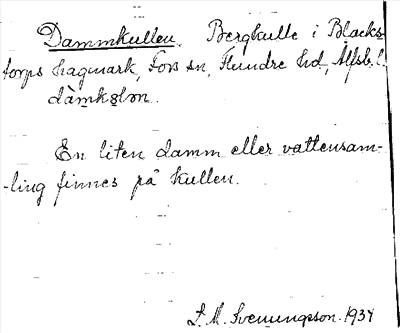 Dammkullen. Bergkulle i Blacks-
torps hagmark, Fors sn, Flundre hd, Älfsb. l.
dàmkɵlɵn.
En liten damm eller vattensam-
-ling finnes på kullen.
L. M. Svenungsson. 1934